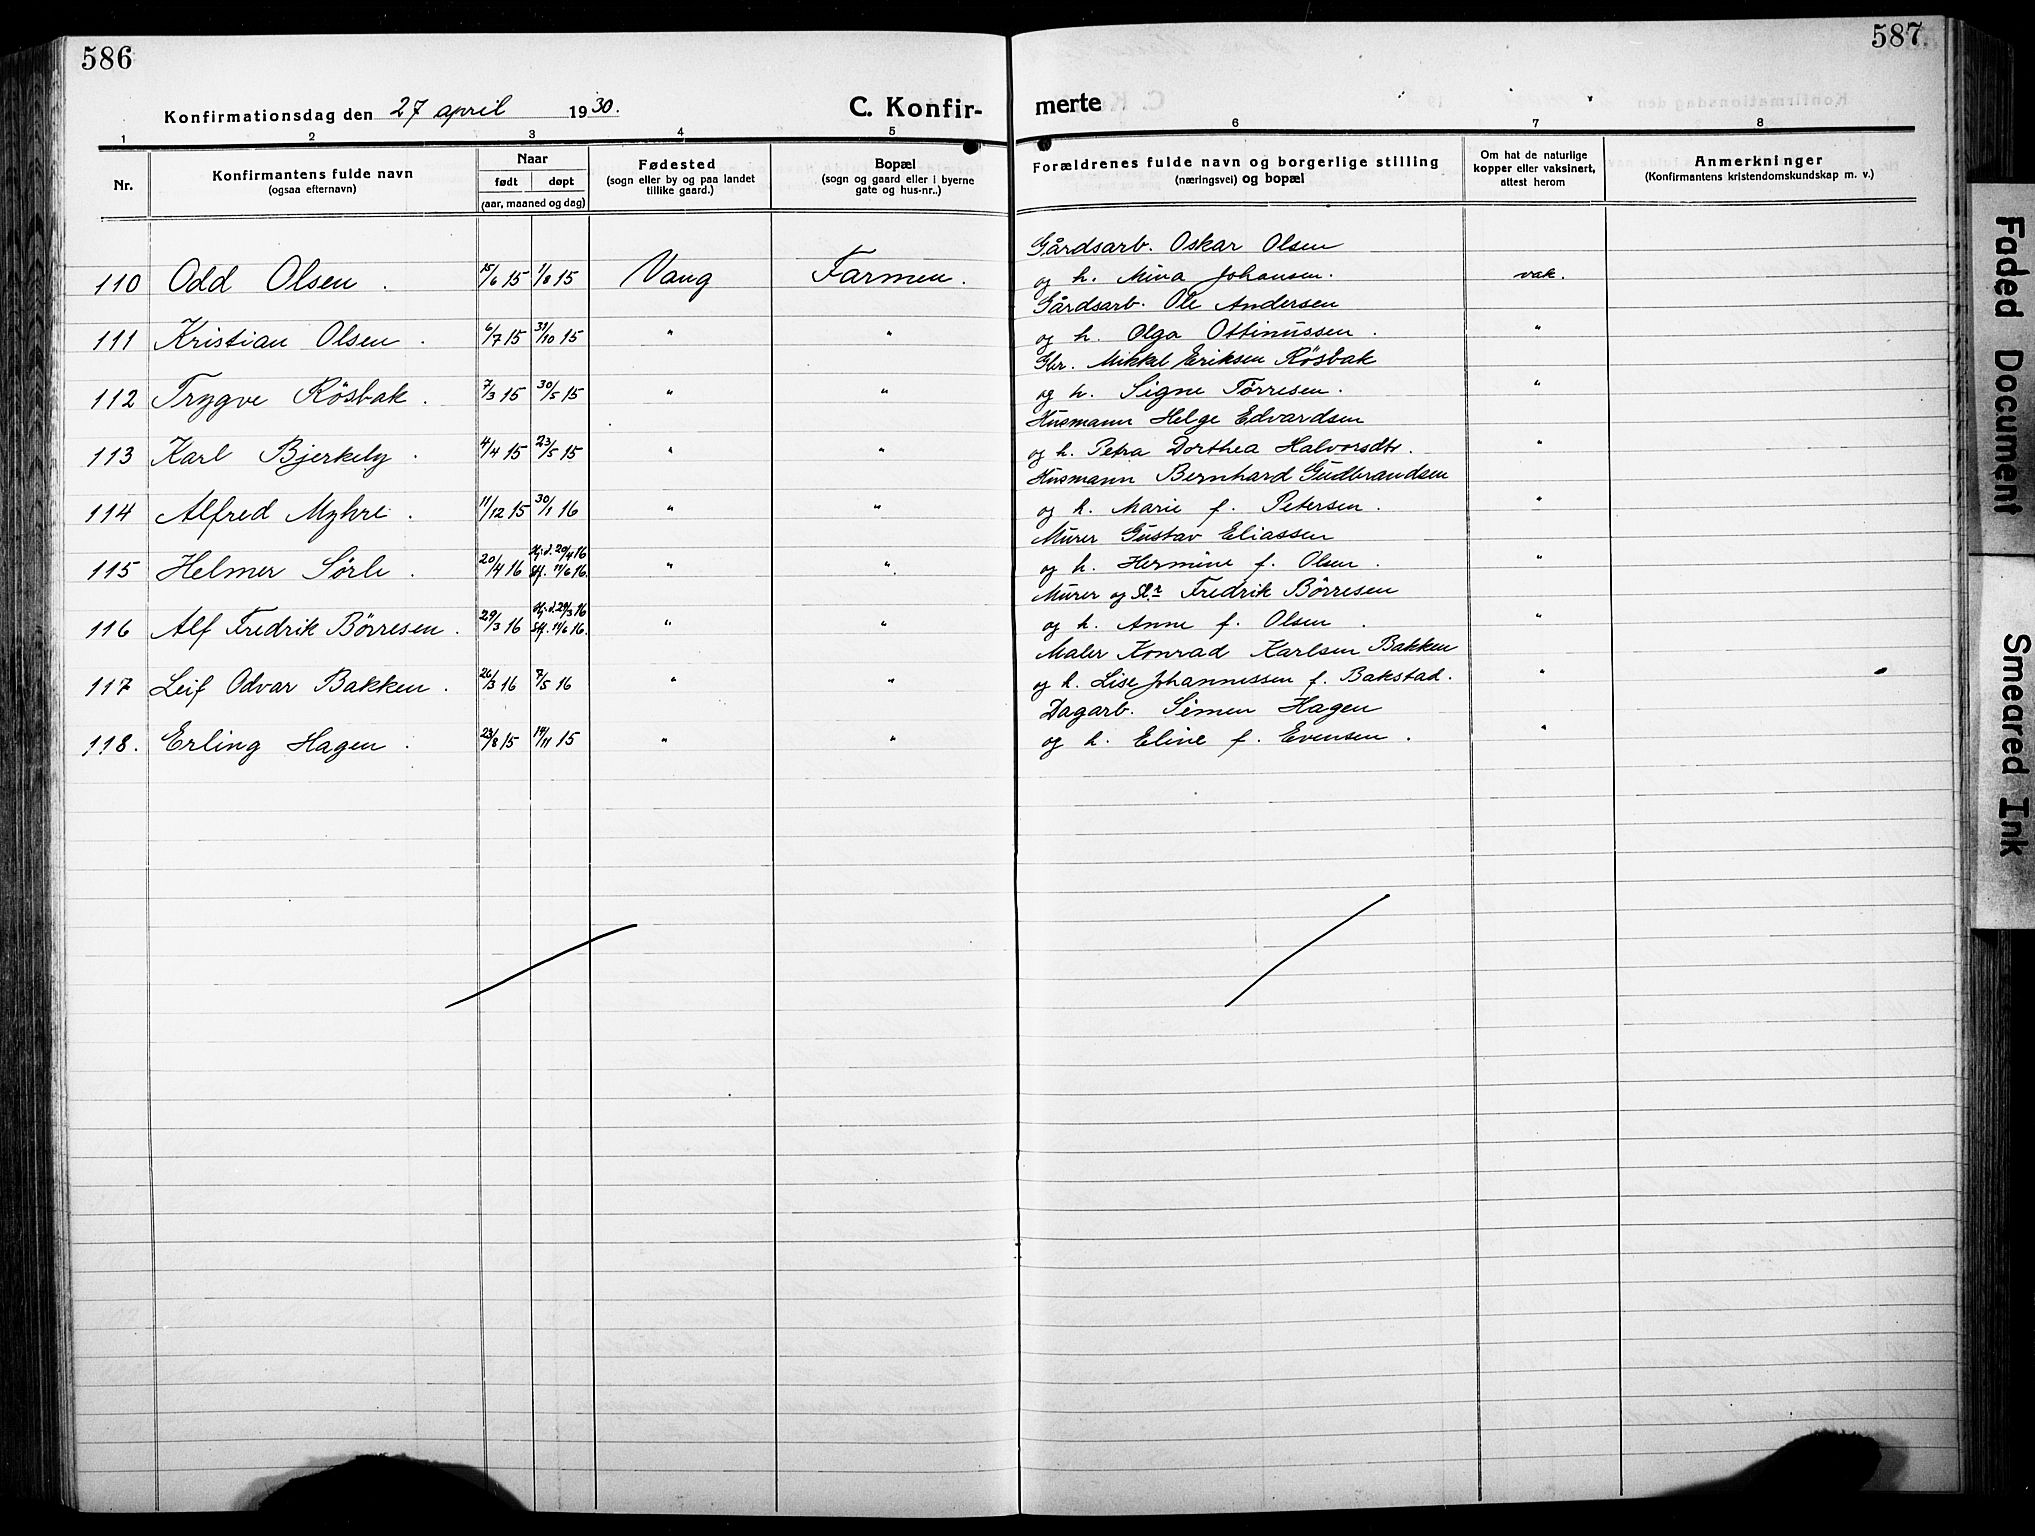 586
587
Konfirmationsdag den 27 april 1930.
C. Konfir-
merte
1 2 3 4 5 6 7 8
Nr.
Konfirmantens fulde navn
(ogsaa efternavn)
Naar
født døpt
(aar, maaned og dag)
Fødested
(sogn eller by og paa landet
tillike gaard.)
Bopæl
(sogn og gaard eller i byerne
gate og hus-nr..)
Forældrenes fulde navn og borgerlige stilling
(næringsvei) og bopæl
Om hat de naturlige
kopper eller vaksinert,
attest herom
Anmerkninger
(Konfirmantens kristendomskundskap m. v.)
Gårdsarb. Oskar Olsen
110 Odd Olsen. 15/6 15 1/8 15 Vang Farmen. og h. Mina Johansen. vak.
Gårdsarb. Ole Andersen
111 Kristian Olsen. 6/7 15 31/10 15 " " og h. Olga Ottinussen. "
Gbr. Mikkel Eriksen Røsbak
112 Trygve Røsbak. 7/3 15 30/5 15 " " og h. Signe Tørresen. "
Husmann Helge Edvardsen
113 Karl Bjerkely. 4/4 15 23/5 15 " " og h. Petra Dorthea Halvorsdtr. "
Husmann Bernhard Gudbrandsen
114 Alfred Myhre. 11/12 15 30/1 16 " " og h. Marie f. Petersen. "
Murer Gustav Eliassen
115 Helmer Sørli. 20/4 16 Hj.d. 20/4 16 Stf. 11/6 16. " " og h. Hermine f. Olsen. "
Murer og Fredrik Børresen
116 Alf Fredrik Børresen. 29/3 16 Hj.d. 29/3 16 Stf. 11/6 16. " " og h. Anne f. Olsen. "
Maler Konrad Karlsen Bakken
117 Leif Odvar Bakken. 26/3 16 7/5 16 " " og h. Lise Johannessen f. Bakstad. "
Dagarb. Simen Hagen
118. Erling Hagen. 23/8 15 14/11 15 " " og h. Eline f. Evensen. "
Faded Document
Smeared Ink